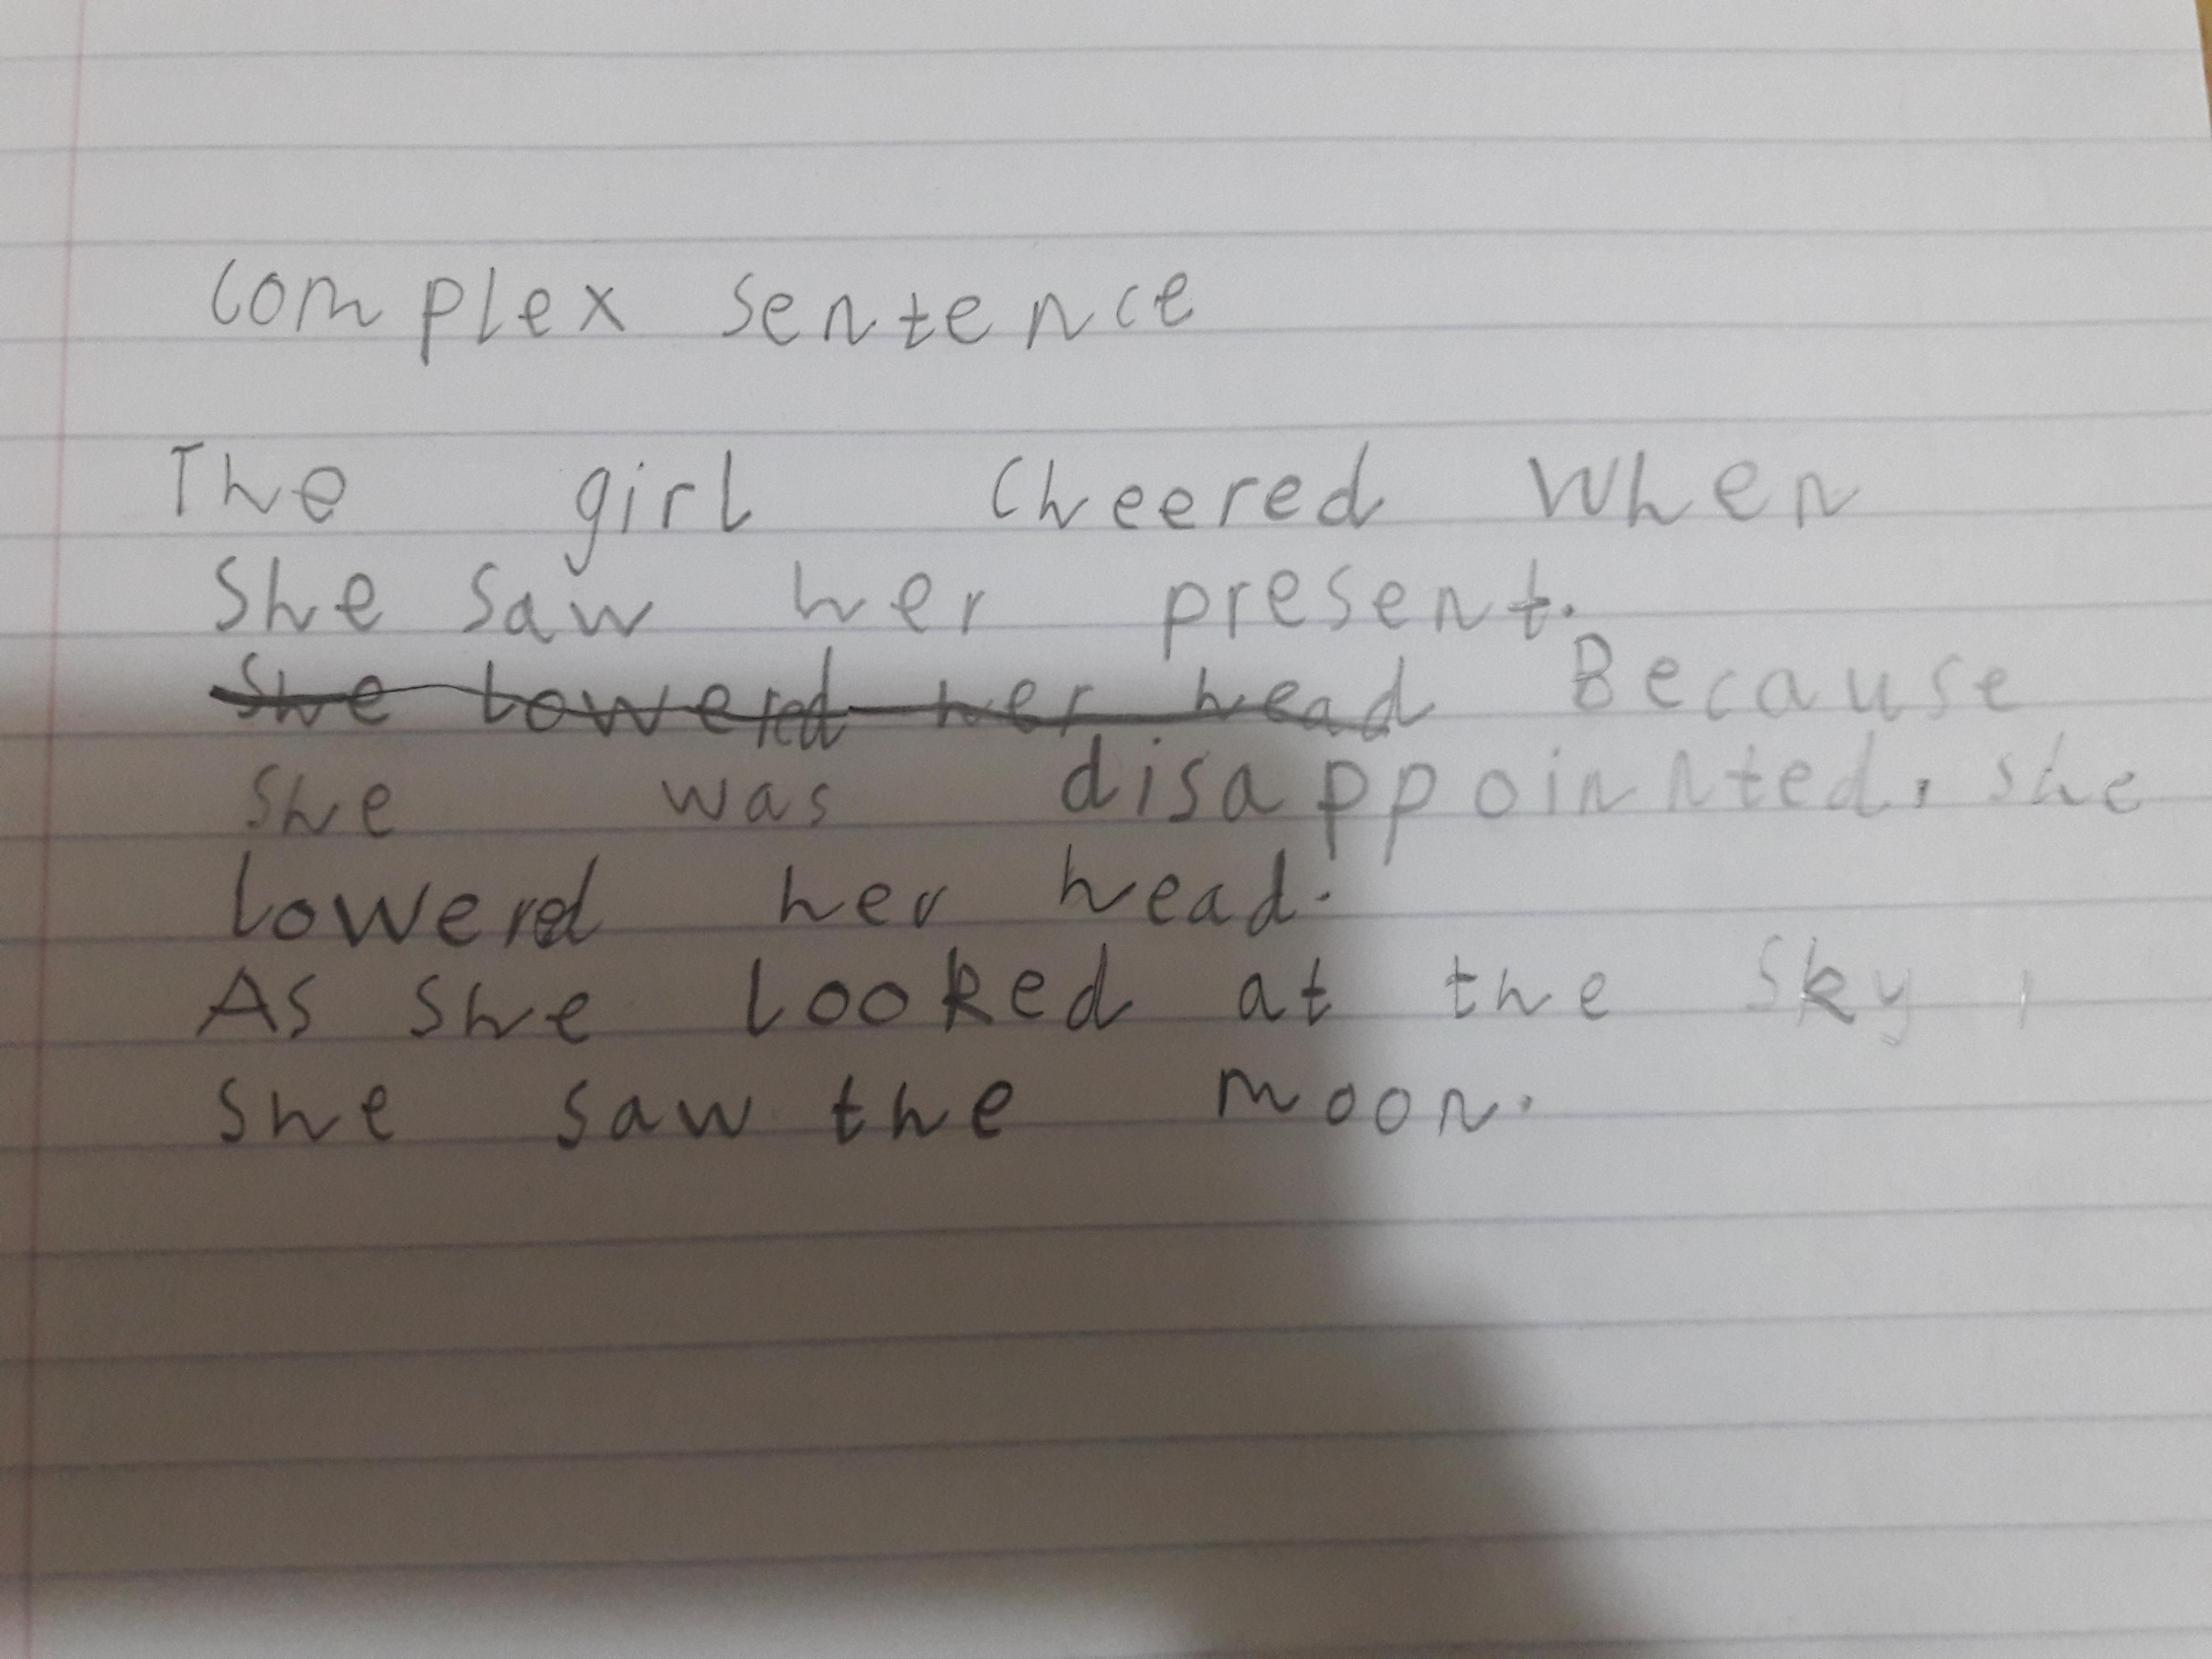 Complex sentence
The girl Cheered when
She saw her present.
She lowered her head Because
She was disappoinnted, she
lowered her head.
As she looked at the sky,
she saw the moon.